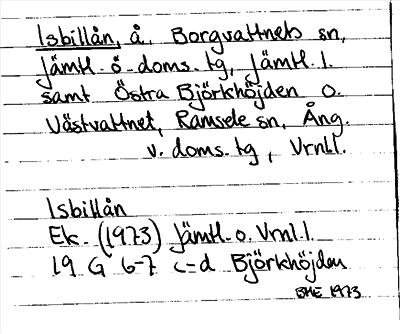 Isbillån, å, Borgvattnets sn,
Jämtl. ö. doms. tg, Jämtl. l.
samt Östra Björkhöjden o.
Västvattnet, Ramsele sn, Ång.
v. doms. tg, Vrnl l.
Isbillån
Ek. (1973) Jämtl. o. Vrnl. l.
19 G 6-7 c-d Björkhöjden
BME 1973